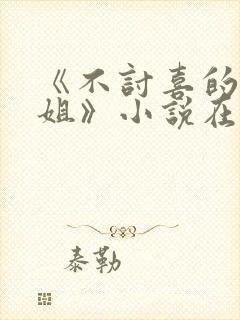 《不討喜的
姐》小說在
泰勒